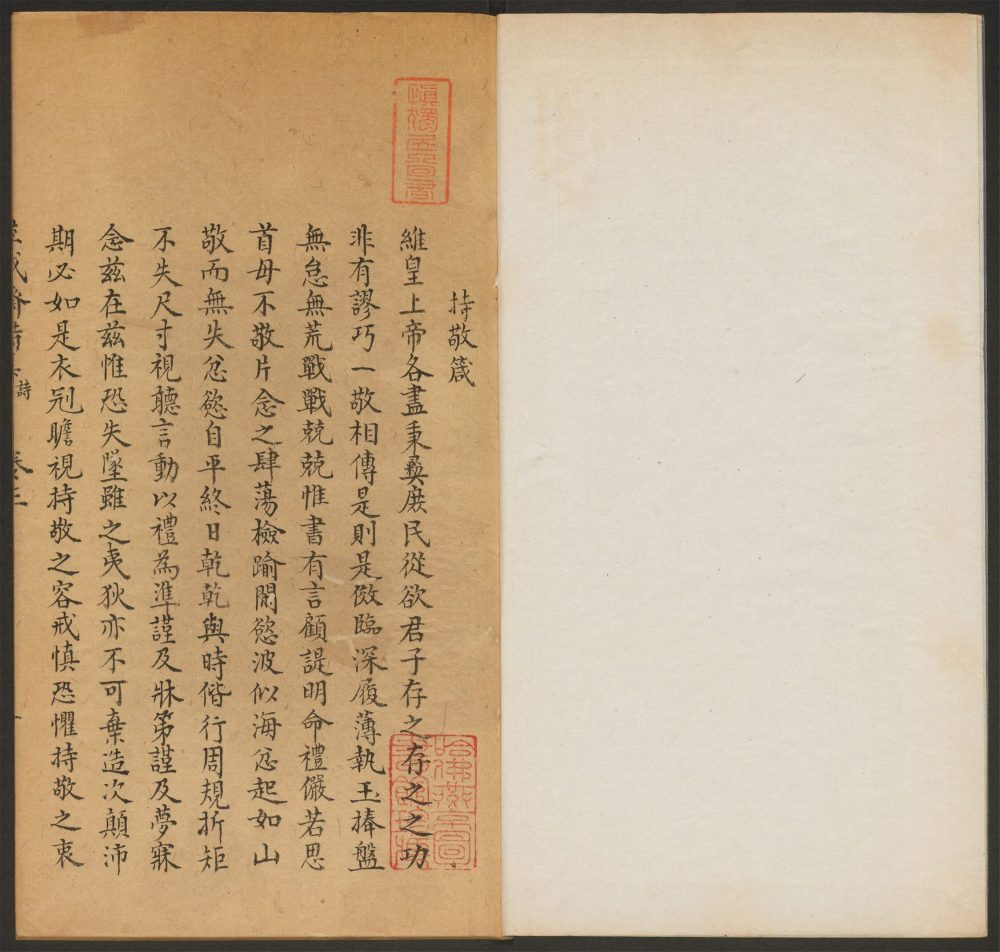 持敬箴
維皇上帝各盡秉彝庶民從欲君子存之存之之功
非有謬巧一敬相傳是則是傚臨深履薄執玉捧盤
無怠無荒戰戰兢兢惟書有言顧諟明命禮儼若思
首毋不敬片念之肆蕩檢踰閑慾波似海忿起如山
敬而無失忿慾自平終日乾乾與時偕行周規折矩
不失尺寸視聽言動以禮為準謹及牀笫謹及夢寐
念兹在兹惟恐失墜雖之夷狄亦不可棄造次顛沛
期必如是衣冠瞻視持敬之容戒慎恐懼持敬之衷
詩
哈佛燕京